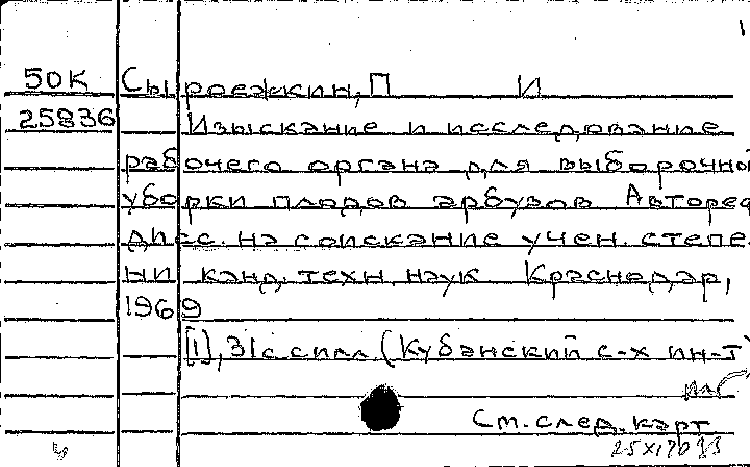 1
50К Сыроежкин, П И
25836 Изыскание и исследование
рабочего органа для выборочной
уборки плодов арбузов Автореф
дисс. на соискание учен. степе-
ни канд. техн. наук Краснодар,
1969
[1], 31 с с илл (Кубанский с-х ин-т)
См. след. карт